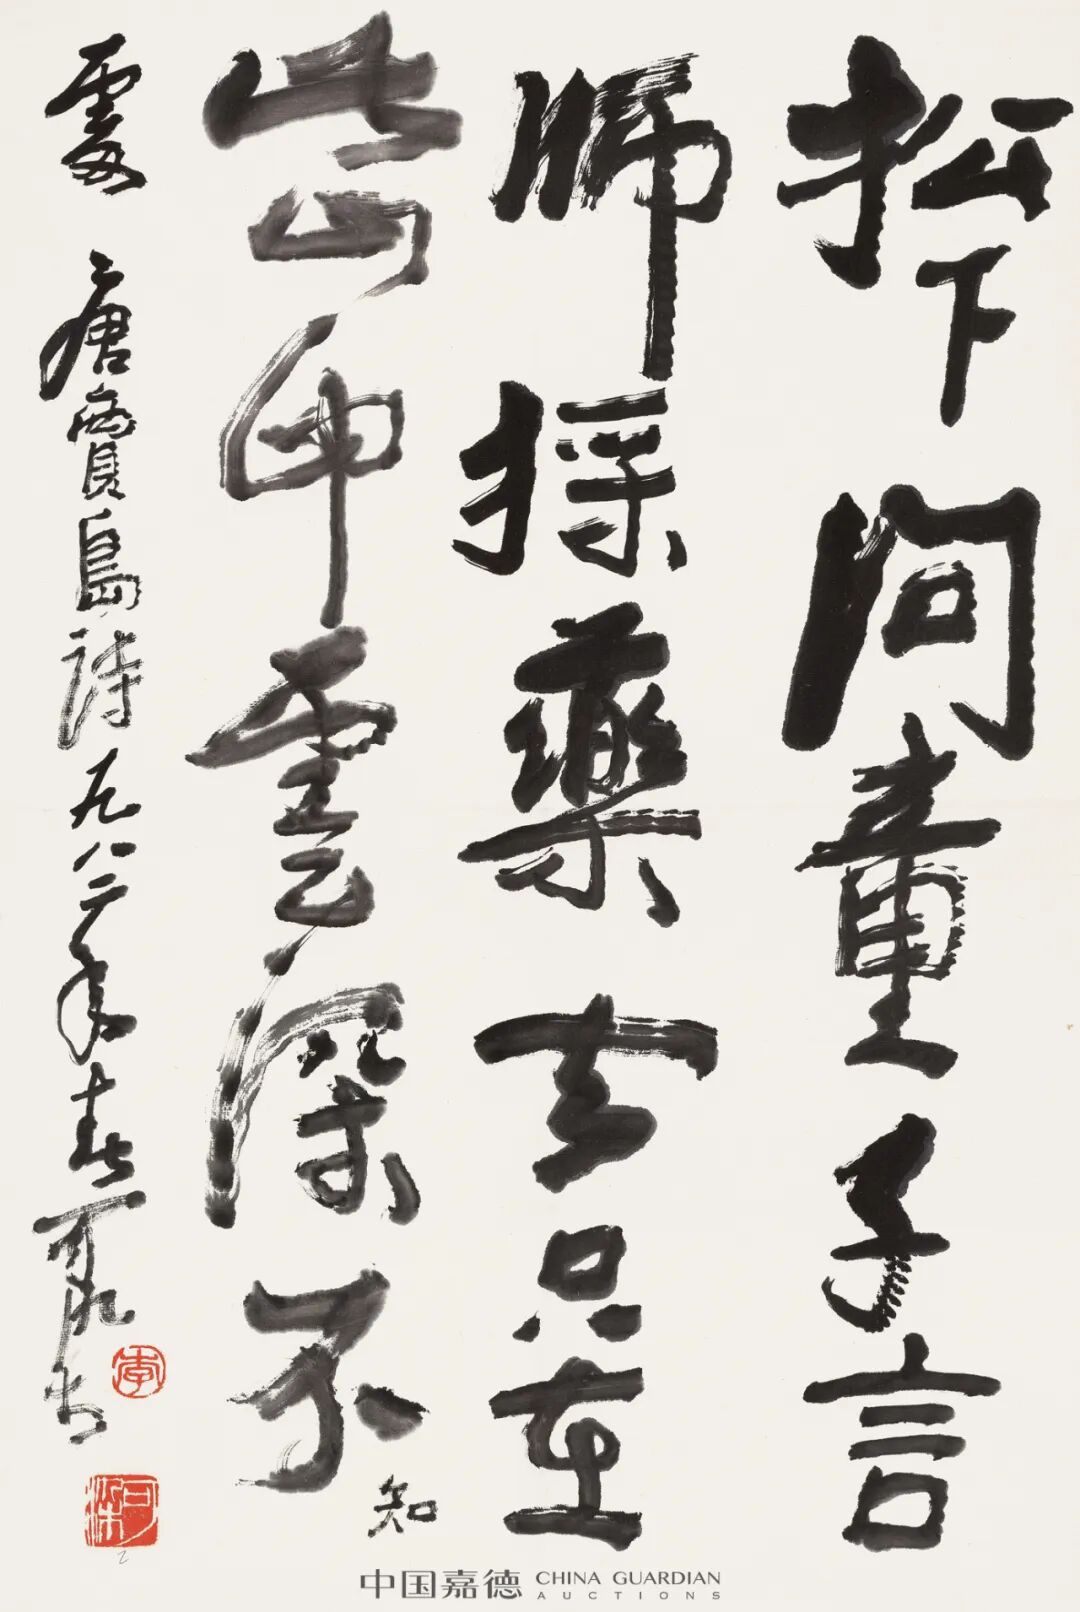 松下問童子言
師採藥去只在
此山中雲深不
知
處 唐賈島詩九八二年春可染书
李
可染
中国嘉德 CHINA GUARDIAN
AUCTIONS